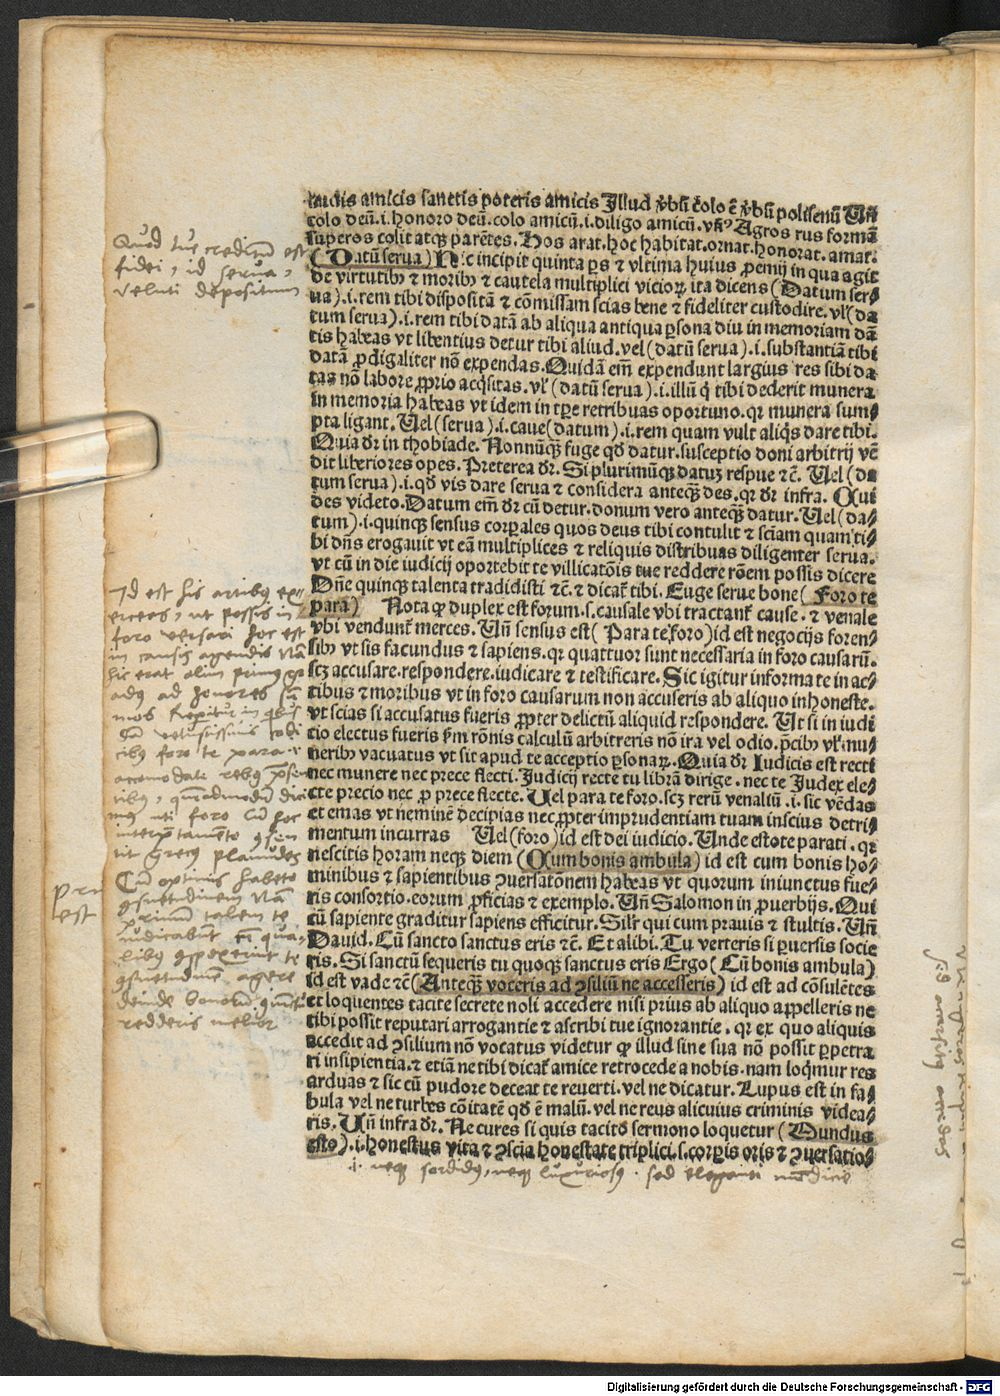 laudis amicis sanctis poteris amicis Illud v̄bū colo ē v̄bū polisenū Uñ
colo deū.i.honoro deū.colo amicū.i.diligo amicū.vñ Agros rus formā
superos colit atqꝫ parētes.Hos arat.hoc habitat.ornat.honorat.amat.
(Datū serua) Nic incipit quinta ps & vltima huius ꝓemij in qua agit
de virtutibꝰ & moribꝰ & cautela multiplici vicioꝝ ita dicens (Datum ser⸗
ua).i.rem tibi dispositā & cōmissam scias bene & fideliter custodire.vl'(da
tum serua).i.rem tibi datā ab aliqua antiqua ꝑsona diu in memoriam dā
tis habeas vt libentius detur tibi aliud.vel(datū serua).i.substantiā tibi
datā ꝓdigaliter nō expendas.Quidā em̄ expendunt largius res sibi da
tas nō labore ꝓprio acq̄sitas.vl'(datū serua).i.illū q̄ tibi dederit munera
in memoria habeas vt idem in tꝑe retribuas oportuno.qꝛ munera sum⸗
pta ligant.Uel(serua).i.caue(datum).i.rem quam vult aliq̄s dare tibi.
Quia dr̄ in thobiade.Nonnūqꝫ fuge qd̄ datur.susceptio doni arbitrij vē
dit liberiores opes.Preterea dr̄.Si plurimūqꝫ datuꝫ respue &c̄.Uel(da
tum serua).i.qd̄ vis dare serua & considera anteqꝫ des.qꝛ dr̄ infra.Cui
des videto.Datum em̄ dr̄ cū detur.donum vero anteqꝫ datur.Uel(da⸗
tum).i.quinqꝫ sensus corꝑales quos deus tibi contulit & sc̄iam quam ti⸗
bi dn̄s erogauit vt eā multiplices & reliquis distribuas diligenter serua.
vt cū in die iudicij oportebit te villicatōis tue reddere rōem possis dicere
Dn̄e quinqꝫ talenta tradidisti &c̄.& dicat̄ tibi.Euge serue bone(Foro te
para) Nota ꝙ duplex est forum.s.causale vbi tractant̄ cause.& venale
vbi vendunt̄ merces.Uñ sensus est(Para te foro)id est negocijs foren⸗
sibꝰ vt sis facundus & sapiens.qꝛ quattuor sunt necessaria in foro causarū.
scꝫ accusare.respondere.iudicare & testificare.Sic igitur informa te in ac⸗
tibus & moribus vt in foro causarum non accuseris ab aliquo inhoneste.
vt scias si accusatus fueris ꝓpter delictū aliquid respondere.Ut si in iudi
cio electus fueris s̄m rōnis calculū arbitreris nō ira vel odio.p̄cibꝰ vl' mu⸗
neribꝰ vacuatus vt sit apud te acceptio ꝑsonaꝝ.Quia dr̄ Iudicis est recti
nec munere nec prece flecti.Judicij recte tu librā dirige.nec te Judex ele⸗
cte precio nec ꝓ prece flecte.Uel para te foro.scꝫ rerū venaliū.i.sic vēdas
et emas vt neminē decipias nec ꝓpter imprudentiam tuam inscius detri⸗
mentum incurras Uel(foro)id est dei iudicio.Unde estote parati.qꝛ
nescitis horam neqꝫ diem(Cum bonis ambula)id est cum bonis ho⸗
minibus & sapientibus ꝯuersatōnem habeas vt quorum iniunctus fue⸗
ris consortio.eorum ꝓficias & exemplo.Uñ Salomon in ꝓuerbijs.Qui
cū sapiente graditur sapiens efficitur.Silr̄ qui cum prauis & stultis.Uñ
Dauid.Cū sancto sanctus eris &c̄.Et alibi.Tu verteris si ꝑuersis socie
ris.Si sanctū sequeris tu quoqꝫ sanctus eris Ergo(Cū bonis ambula)
id est vade &c̄(Anteqꝫ voceris ad ꝯsiliū ne accesseris)id est ad cōsulētes
et loquentes tacite secrete noli accedere nisi prius ab aliquo appelleris ne
tibi possit reputari arrogantie & ascribi tue ignorantie.qꝛ ex quo aliquis
accedit ad ꝯsilium nō vocatus videtur ꝙ illud sine sua nō possit ꝑpetra
ri insipientia.& etiā ne tibi dicat̄ amice retrocede a nobis.nam loq̄mur res
arduas & sic cū pudore deceat te reuerti.vel ne dicatur.Lupus est in fa⸗
bula vel ne turbes cōitatē qd̄ ē malū.vel ne reus alicuius criminis videa⸗
ris.Uñ infra dr̄.Ne cures si quis tacito sermone loquetur(Mundus
esto).i.honestus vita & ꝯscia honestate triplici.s.corꝑis oris & ꝯuersatio⸗
.i. neqꝫ sordidꝰ, neqꝫ luxuriosꝰ. sed eleganti mūdicie
Quod tue creditum est
fidei, id serua,
veluti depositum
Id est his artibꝰ ex⸗
erceas, ut possis in
foro versari hoc est
in causis agendis Nā
hic erat olim primꝰ gr
adꝰ ad honores sū
mos Repitur in qbus
dā vetustissimis codi
cibꝰ foro te para .i.
accomodate rebꝰ p̄sen
tibꝰ, quēadmodū dici
mꝰ uti foro Cū hoc
interp̄tamēto ꝯsen
tit grecꝰ planudes
Cū optimis habeto
ꝯsuetudinem Nā
primū talem te
iudicabūt eē qua⸗
libus ꝯspexerint te
ꝯsuetudinē agere
deinde bonorū ꝯuictu
redderis melior
pri
est
Digitalisierung gefördert durch die Deutsche Forschungsgemeinschaft - DFG